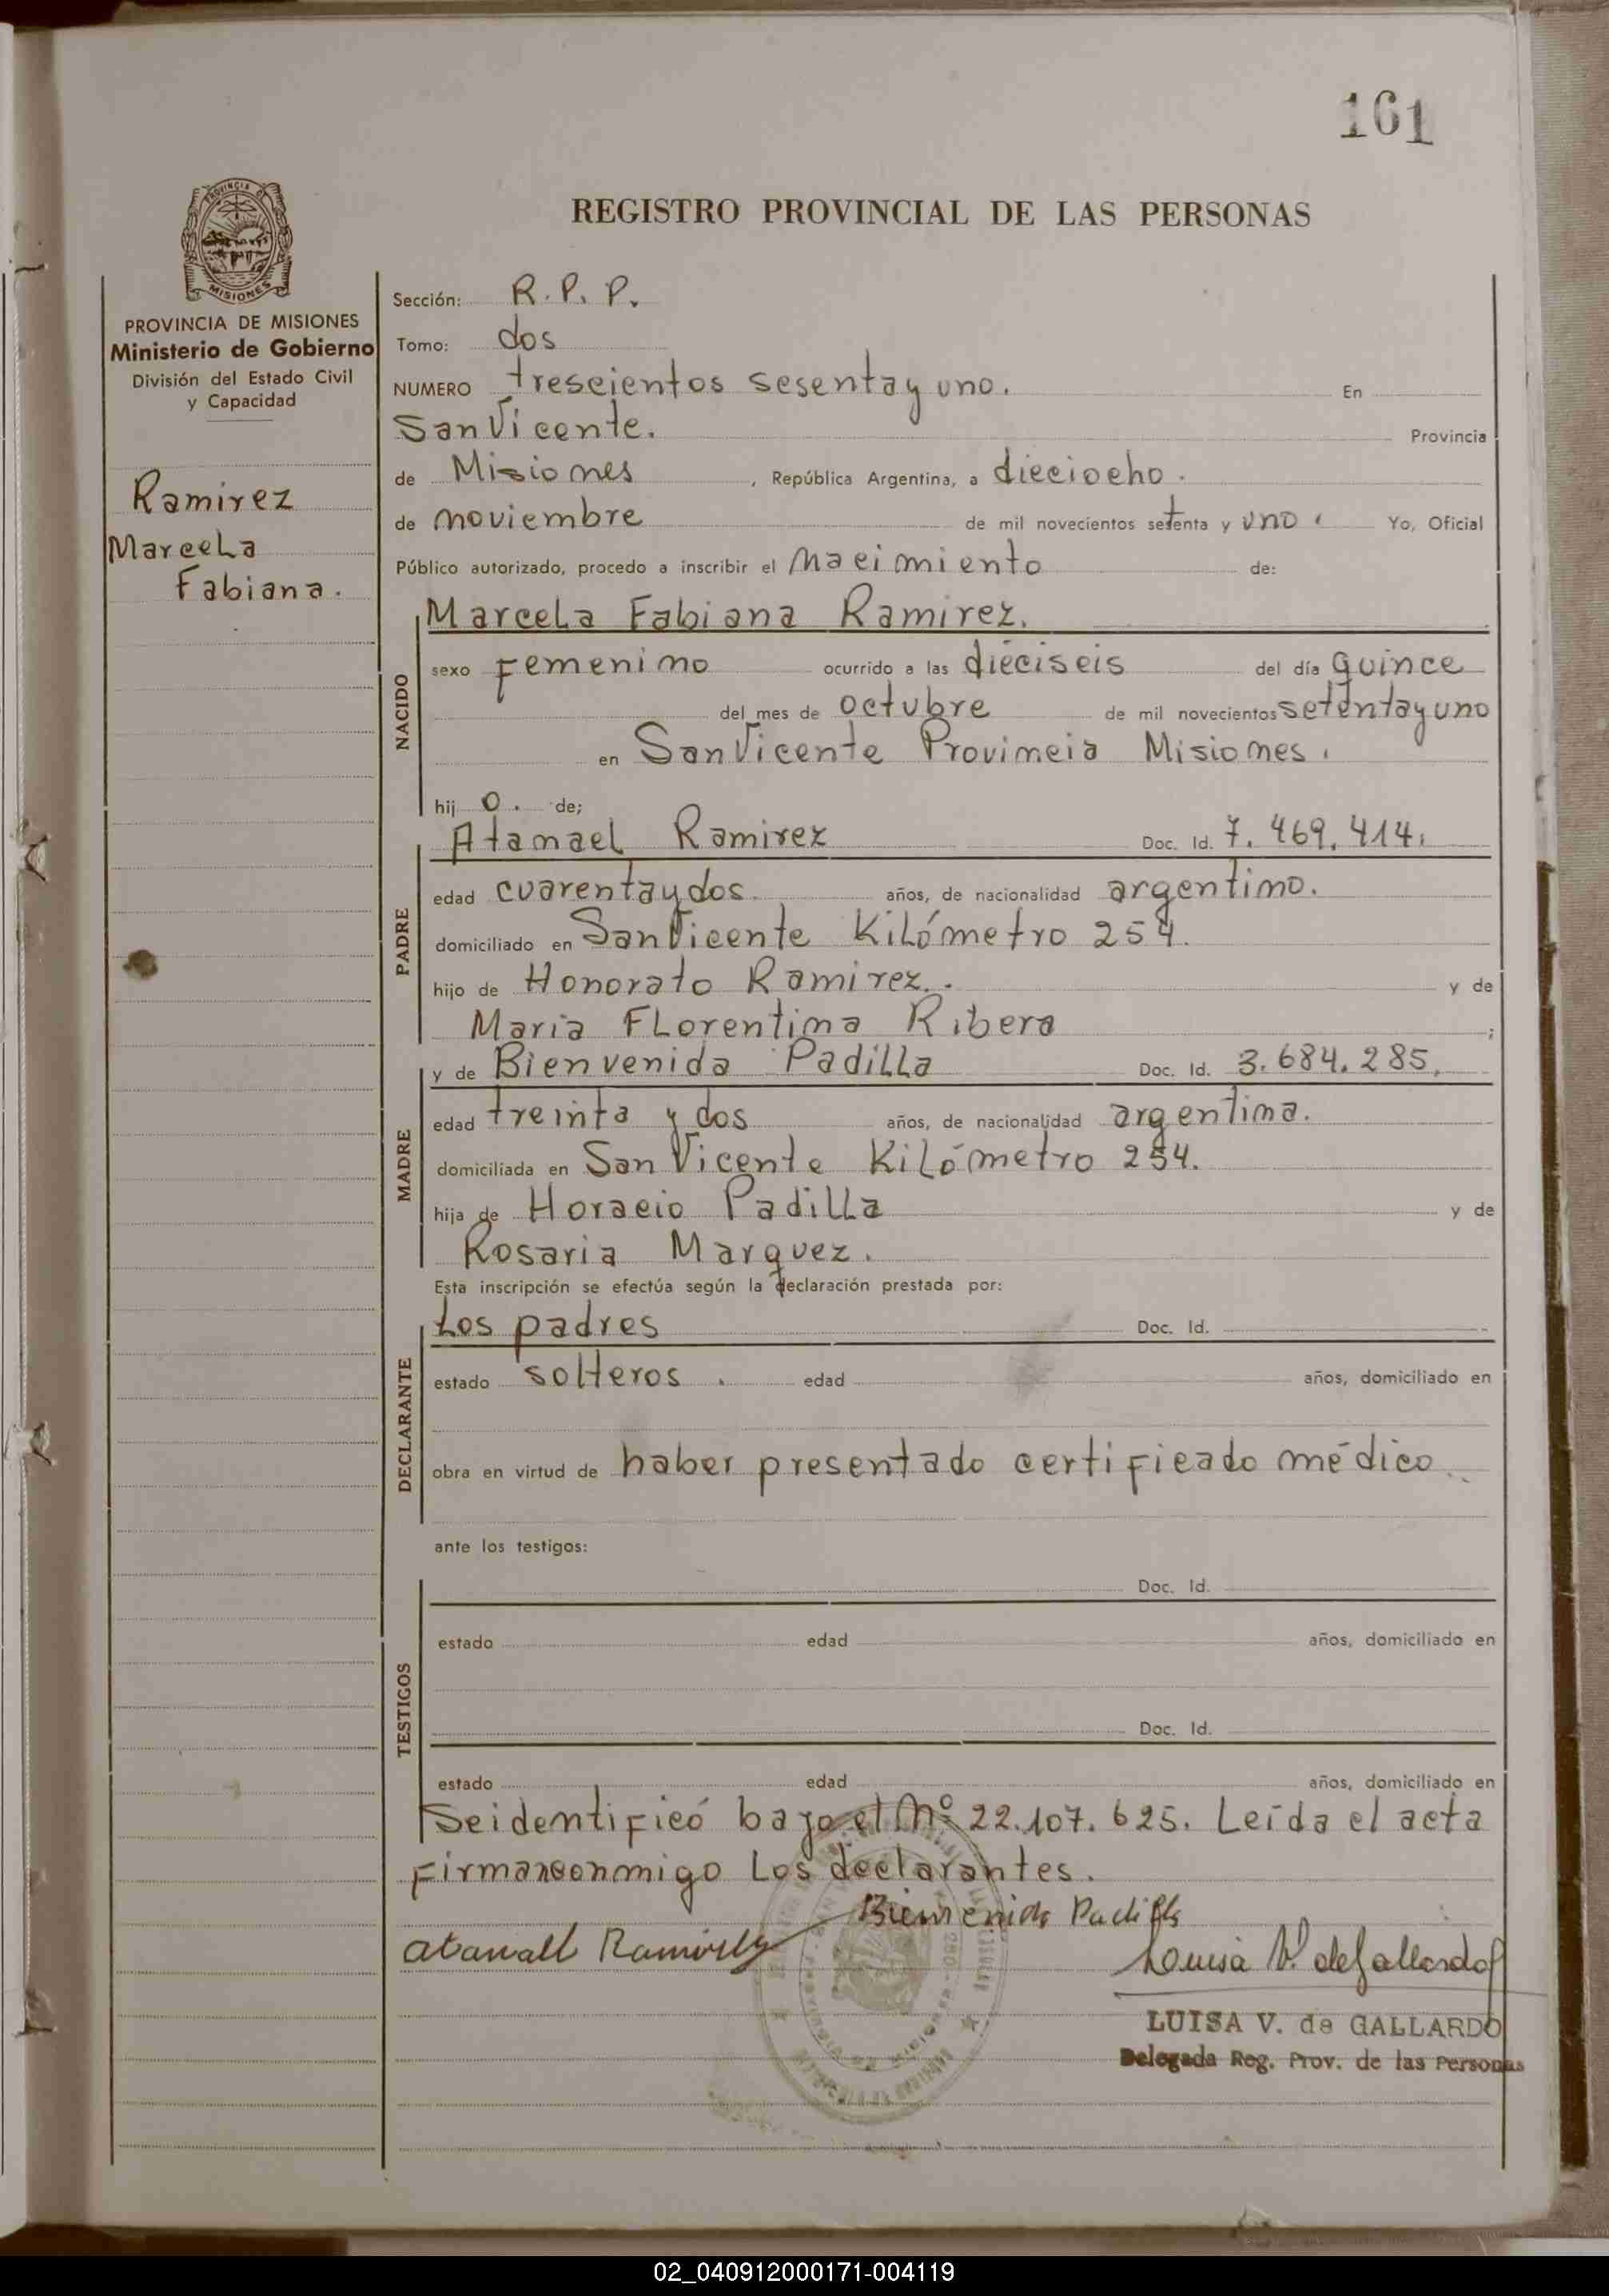 161
REGISTRO PROVINCIAL DE LAS PERSONAS
PROVINCIA DE MISIONES
Ministerio de Gobierno
División del Estado Civil
y Capacidad
Ramirez
Marcela
Fabiana.
Sección: R. P. P.
Tomo: dos
NUMERO trescientos sesentay uno. En
San Vicente. Provincia
de Misiones, República Argentina, a dieciocho.
de noviembre de mil novecientos setenta y uno. Yo, Oficial
Público autorizado, procedo a inscribir el nacimiento de:
NACIDO
Marcela Fabiana Ramirez.
sexo Femenino ocurrido a las dieciseis del día quince
del mes de octubre de mil novecientos setentay uno
en San Vicente Provincia Misiones.
hij o. de;
PADRE
Atanael Ramirez Doc. Id. 7.469.414.
edad cuarentaydos. años, de nacionalidad argentino.
domiciliado en San Vicente Kilómetro 254.
hijo de Honorato Ramirez.. y de
Maria Florentina Ribero ;
MADRE
y de Bienvenida Padilla Doc. Id. 3.684.285.
edad treinta y dos años, de nacionalidad argentina.
domiciliada en San Vicente Kilómetro 254.
hija de Horacio Padilla y de
Rosaria Marquez.
Esta inscripción se efectúa según la declaración prestada por:
DECLARANTE
Los padres Doc. Id.
estado solteros. edad años, domiciliado en
obra en virtud de haber presentado certificado médico..
ante los testigos:
TESTIGOS
Doc. Id.
estado edad años, domiciliado en
Doc. Id.
estado edad años, domiciliado en
Seidentificó bajo el nº 22.107.625. Leída el acta
firmanconmigo los declarantes.
Bienvenida Padilla
Atanael Ramirez
Luisa V. de Gallardo
LUISA V. de GALLARDO
Delegada Reg. Prov. de las Personas
02_040912000171-004119